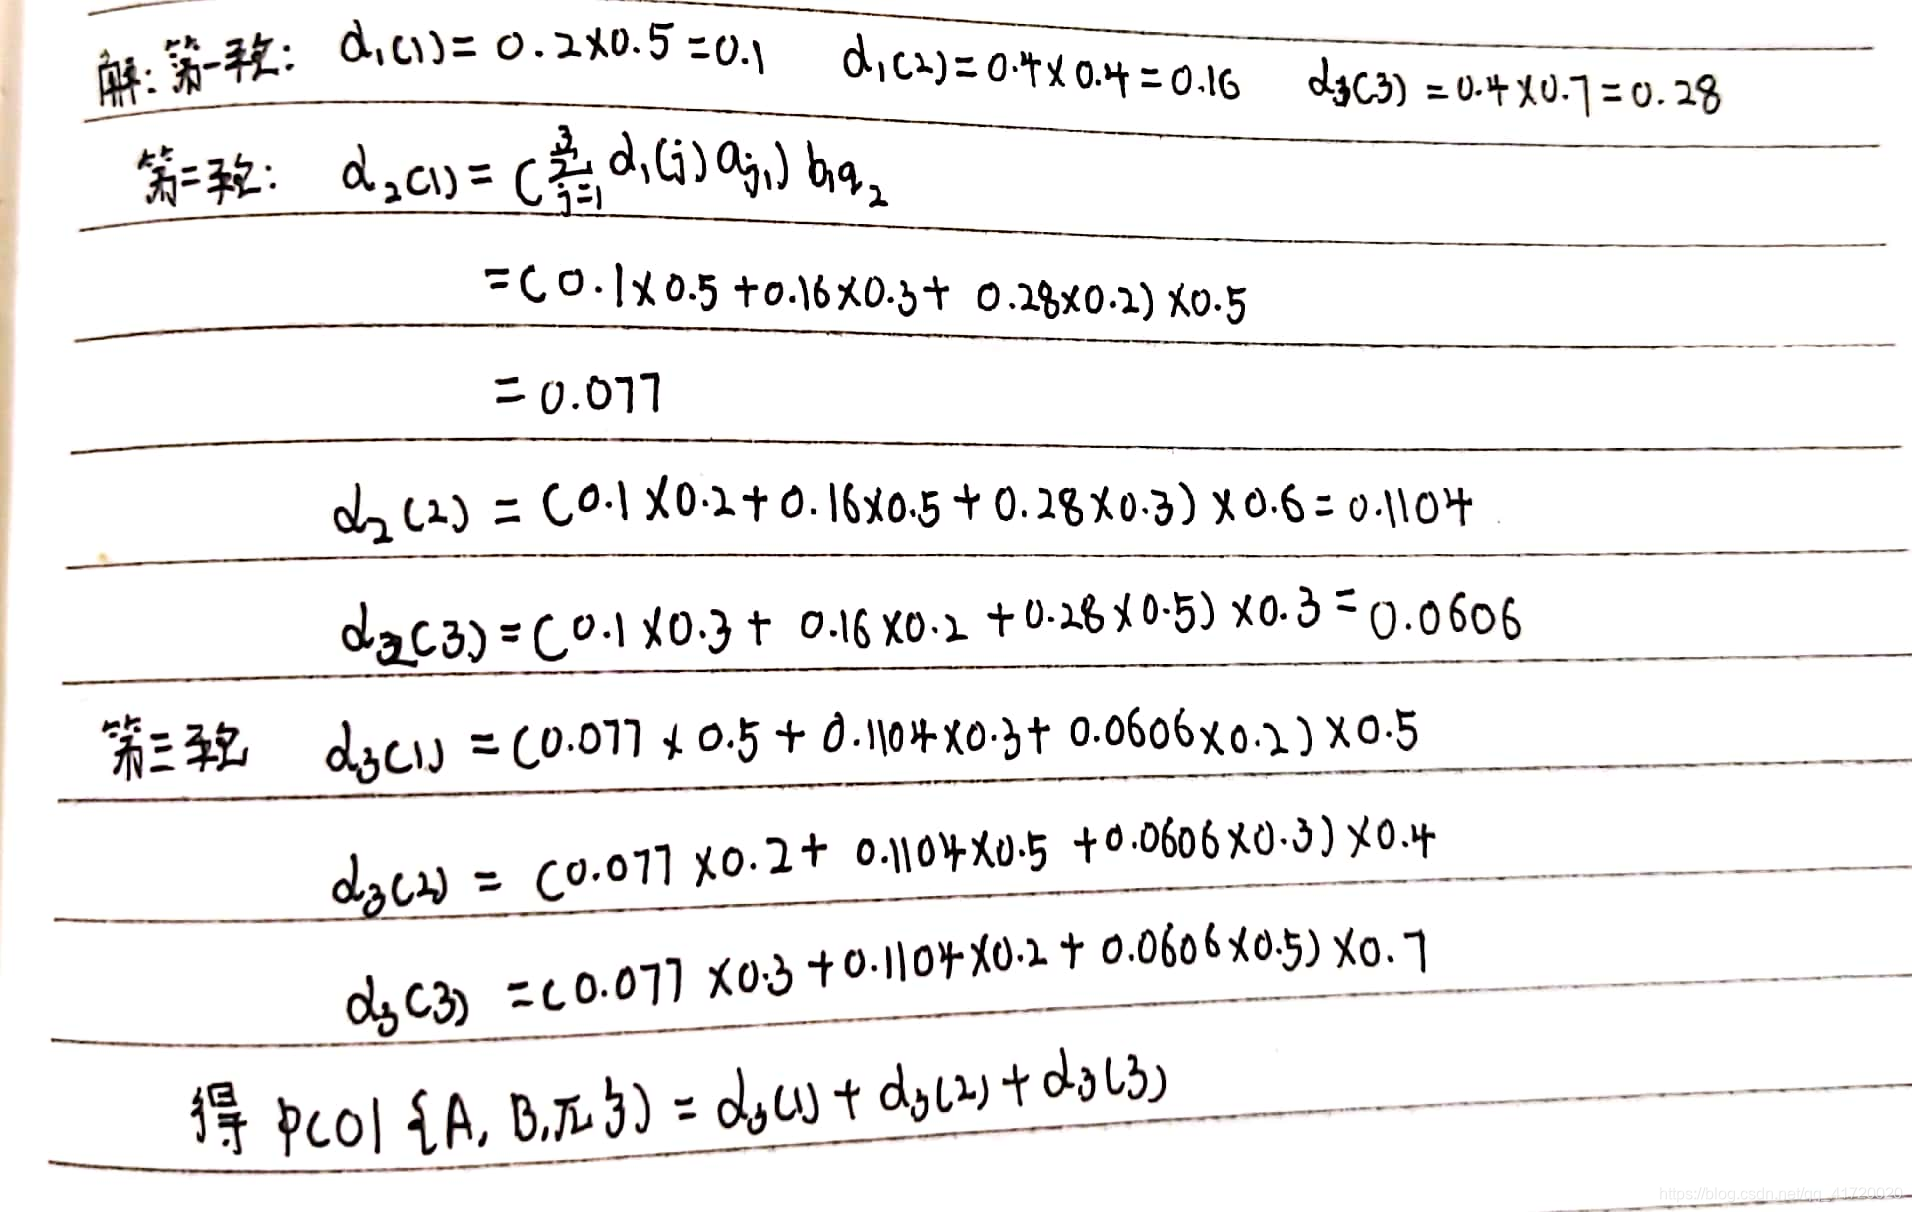 解:第一轮: α₁(1)=0.2×0.5=0.1 α₁(2)=0.4×0.4=0.16 α₃(3)=0.4×0.7=0.28
第二轮: α₂(1)=(∑_{j=1}^{3} α₁(j)a_{j1})b₁q₂
=(0.1×0.5+0.16×0.3+0.28×0.2)×0.5
=0.077
α₂(2)=(0.1×0.2+0.16×0.5+0.28×0.3)×0.6=0.1104
α₂(3)=(0.1×0.3+0.16×0.2+0.28×0.5)×0.3=0.0606
第三轮 α₃(1)=(0.077×0.5+0.1104×0.3+0.0606×0.2)×0.5
α₃(2)=(0.077×0.2+0.1104×0.5+0.0606×0.3)×0.4
α₃(3)=(0.077×0.3+0.1104×0.2+0.0606×0.5)×0.7
得 P(O|{A,B,π})=α₃(1)+α₃(2)+α₃(3)